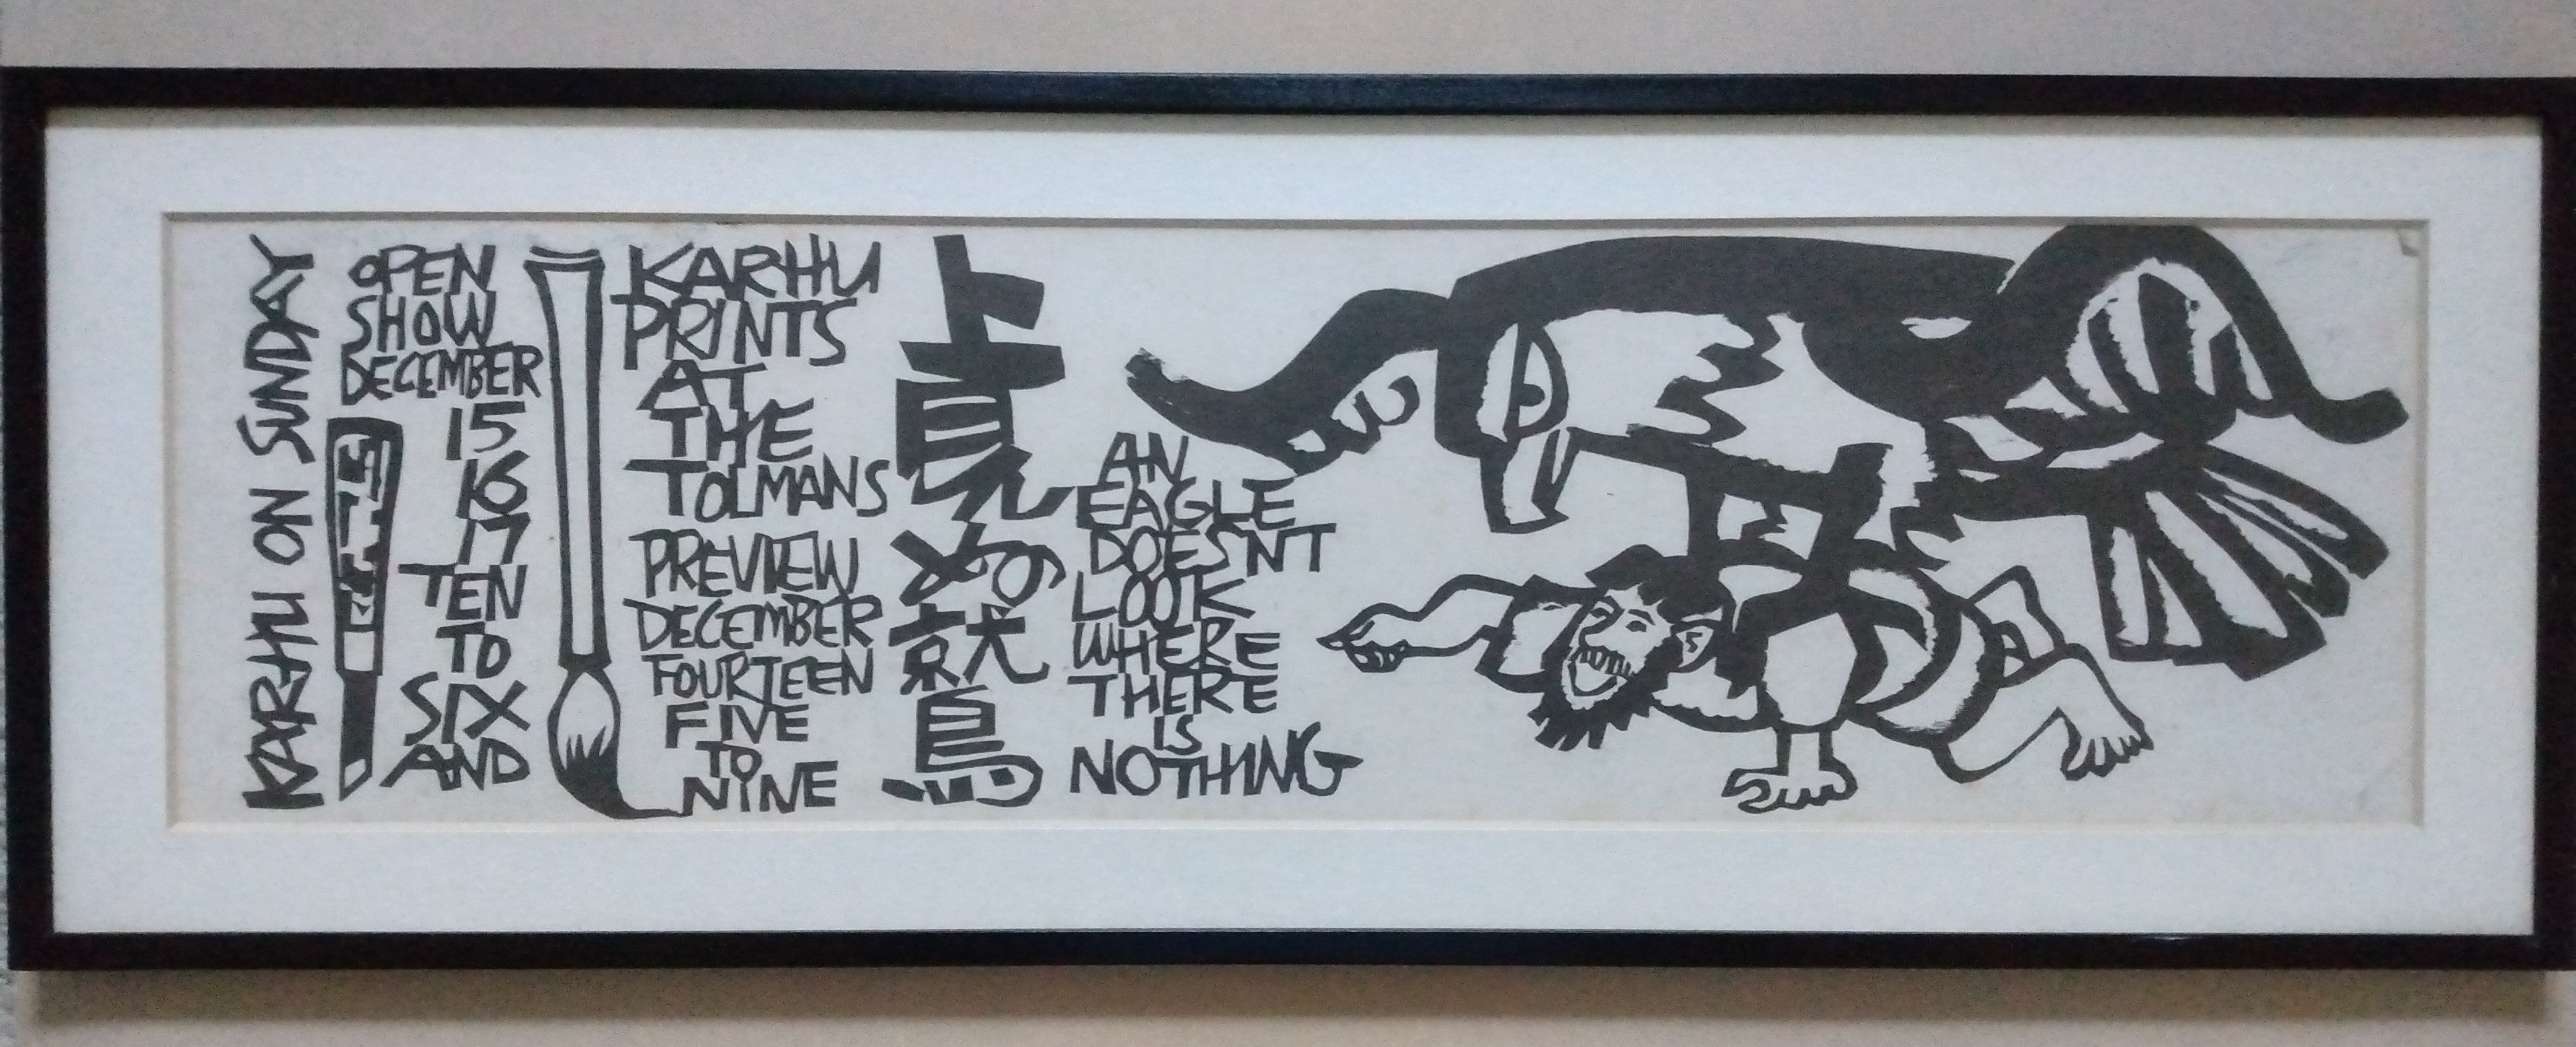 KARHU ON SUNDAY
OPEN
SHOW
DECEMBER
15
16
17
TEN
TO
SIX
AND
KARHU
PRINTS
AT
THE
TOLMANS
PREVIEW
DECEMBER
FOURTEEN
FIVE
TO
NINE
上見ぬ鷲
AN
EAGLE
DOESNT
LOOK
WHERE
THERE
IS
NOTHING